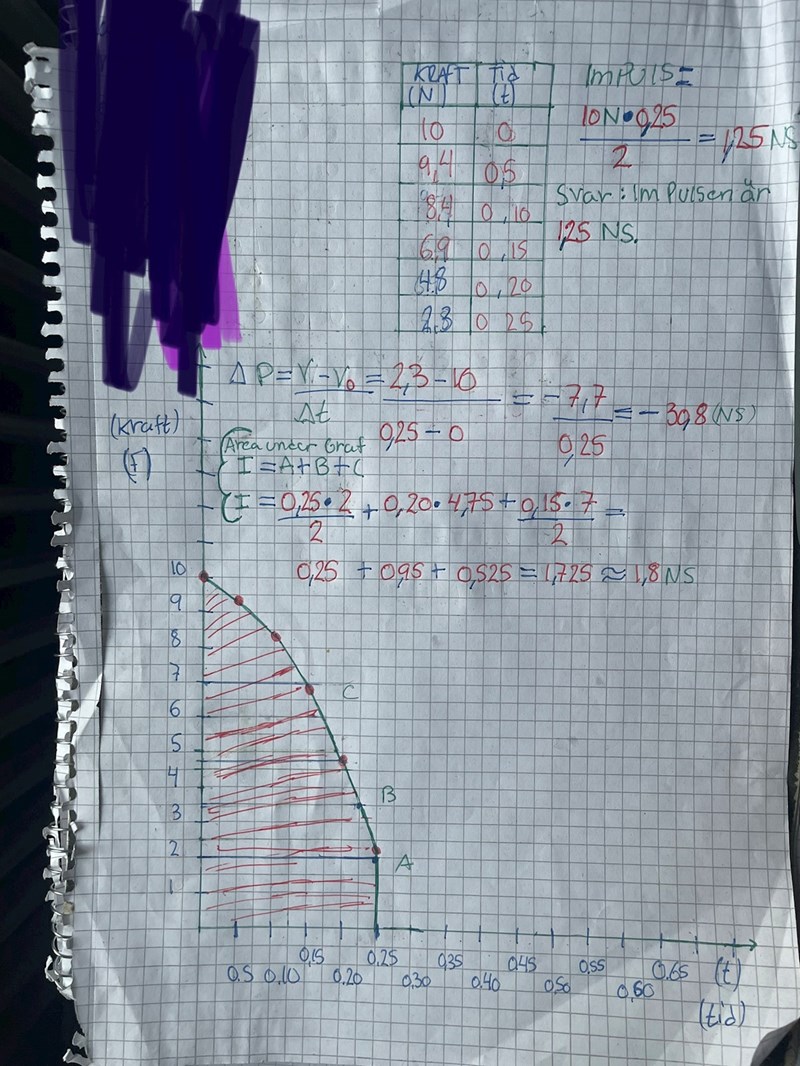 KRAFT (N) Tid (t)
10 0
9,4 0,5
8,4 0,10
6,9 0,15
4,8 0,20
2,3 0 25
ImPULS=
10N•0,25 / 2 = 1,25 NS
Svar: ImPulsen är
1,25 NS.
Δ P = V₁-V₀ / Δt = 2,3-10 / 0,25-0 = -7,7 / 0,25 = -30,8 (NS)
(kraft)
(F)
Area under Graf
I = A+B+C
I = 0,25•2 / 2 + 0,20•4,75 + 0,15•7 / 2 =
0,25 + 0,95 + 0,525 = 1,725 ≈ 1,8 NS
10
9
8
7
C
6
5
4
B
3
2
A
1
0.5 0,10 0,15 0.20 0.25 0.30 0,35 0.40 0,45 0,50 0,55 0,60 0.65 (t)
(tid)